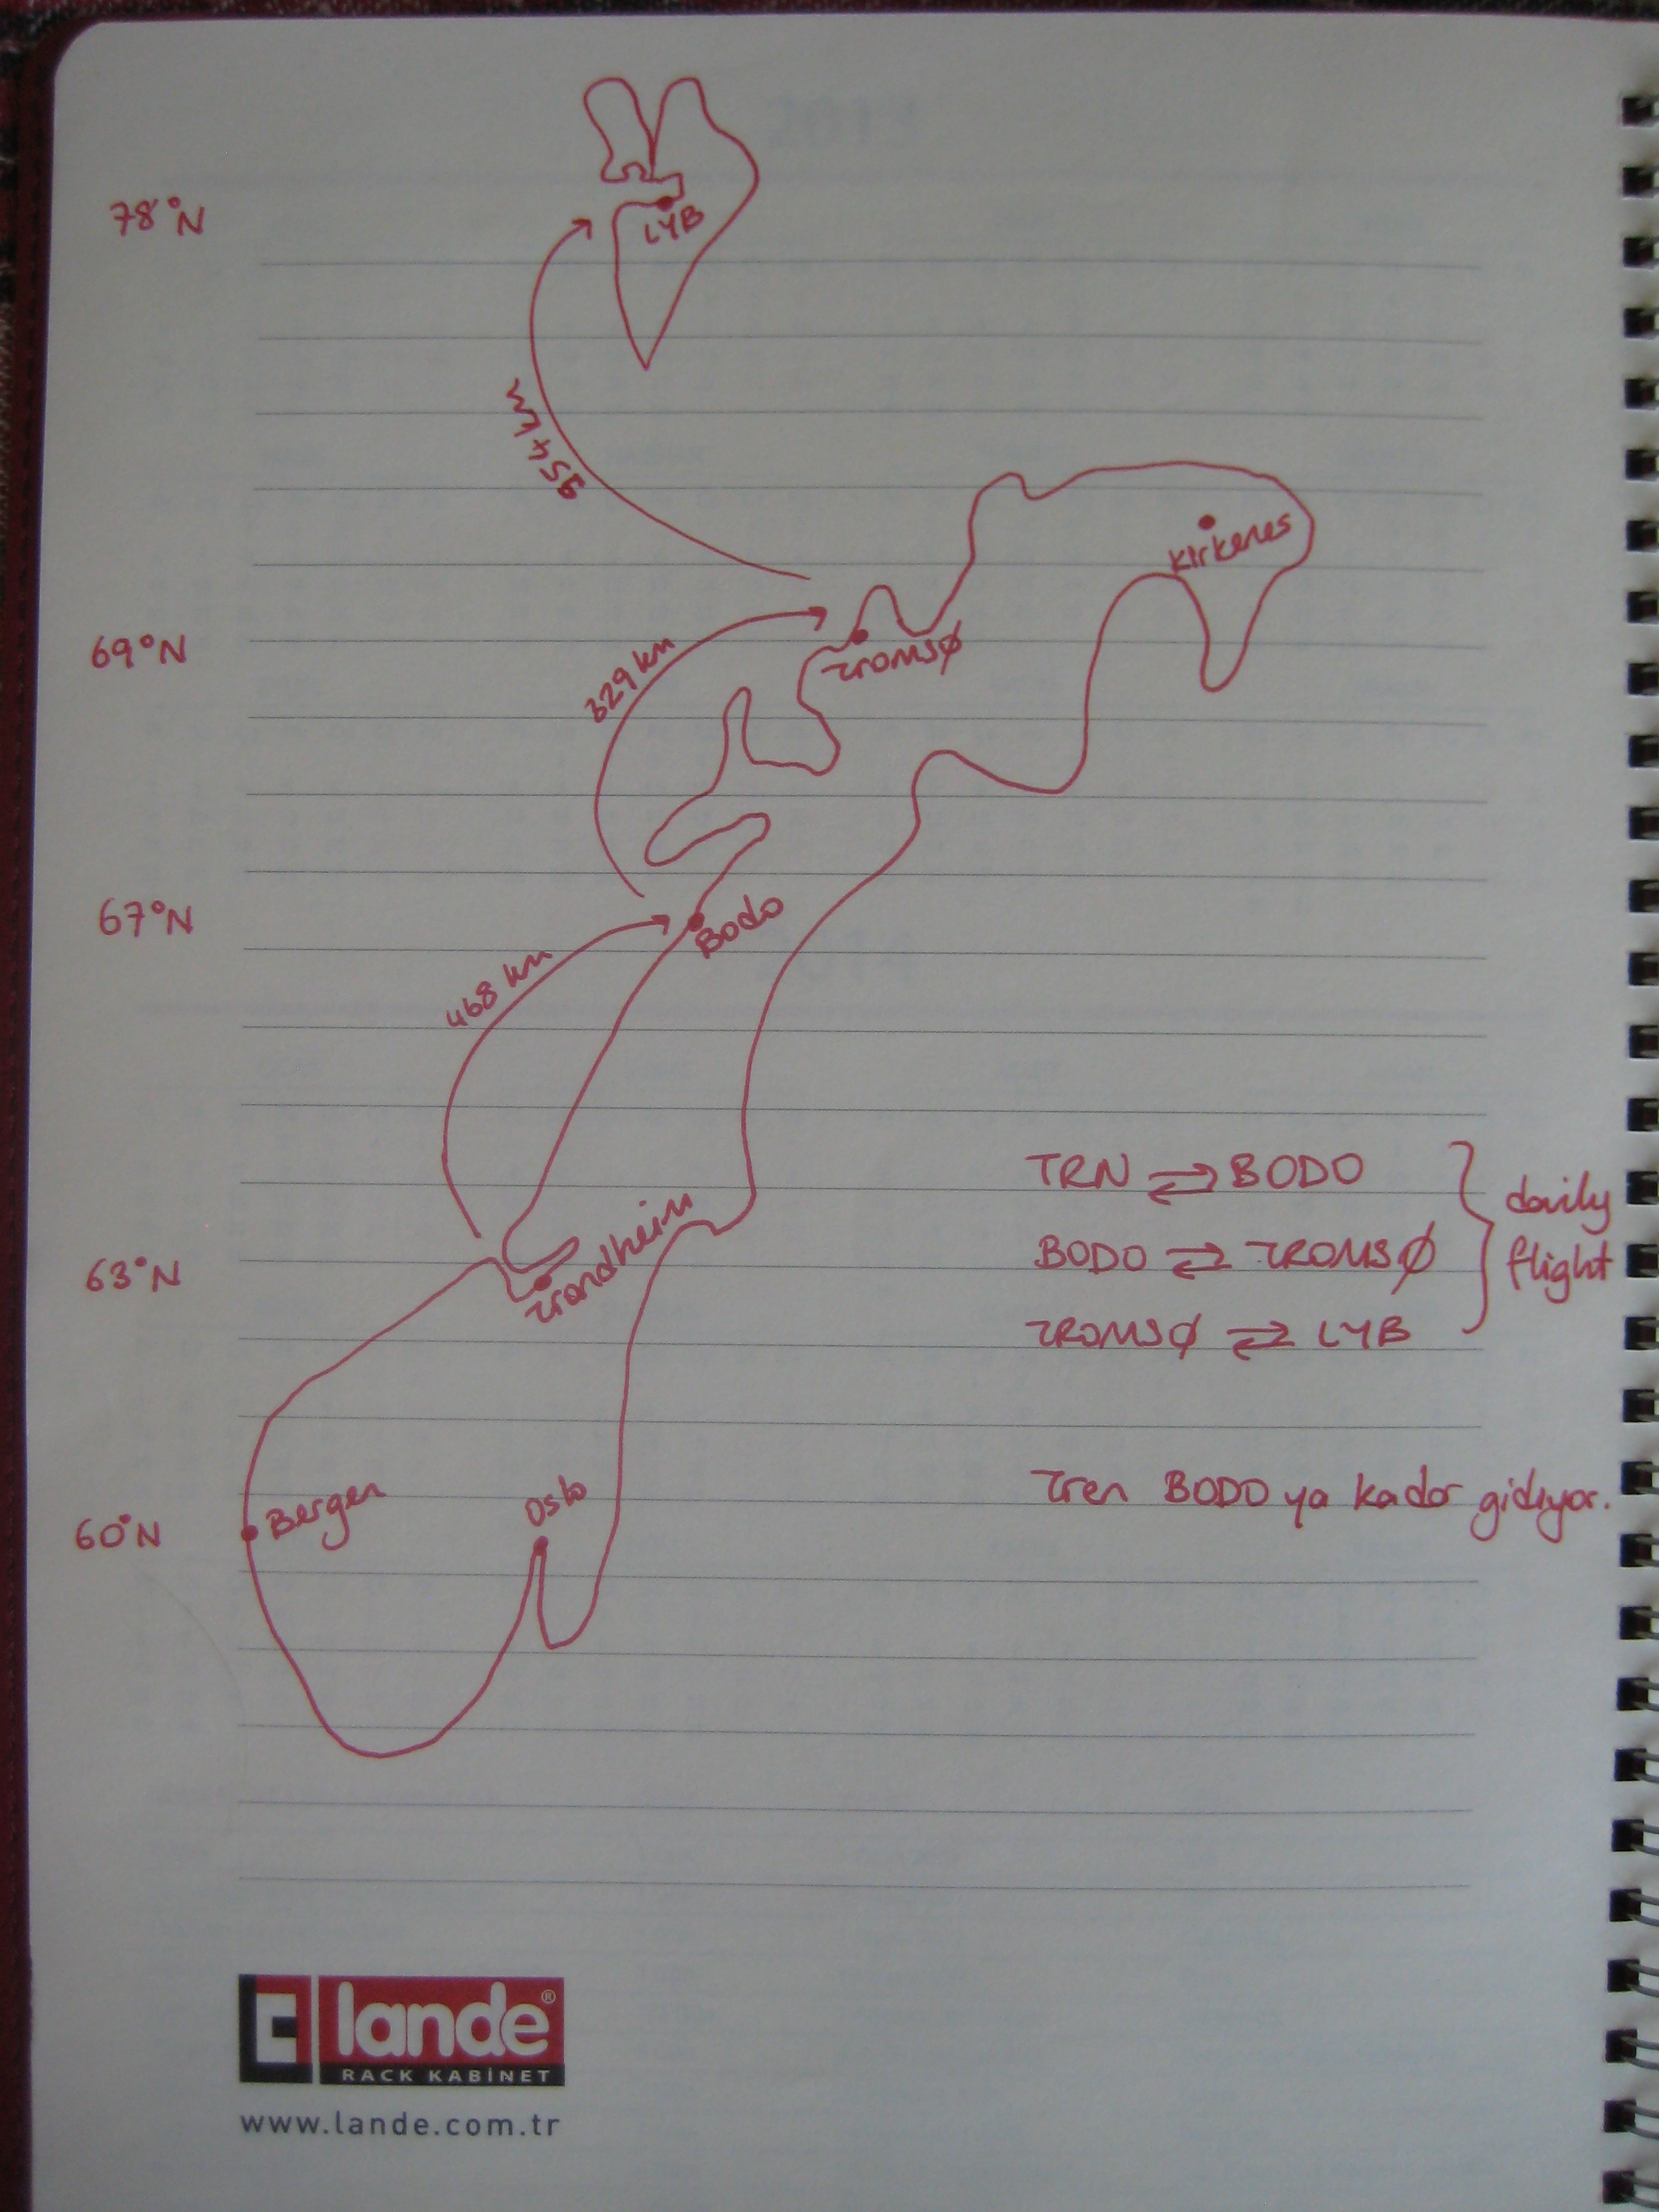 2013
78°N
LYB
954 km
Kirkenes
Tromsø
69°N
329 km
67°N
Bodo
468 km
2014
TRN ⇄ BODO
BODO ⇄ TROMSØ
TROMSØ ⇄ LYB
daily
flight
63°N
Trondheim
Tren BODO ya kadar gidiyor.
60°N
Bergen
Oslo
lande®
RACK KABİNET
www.lande.com.tr